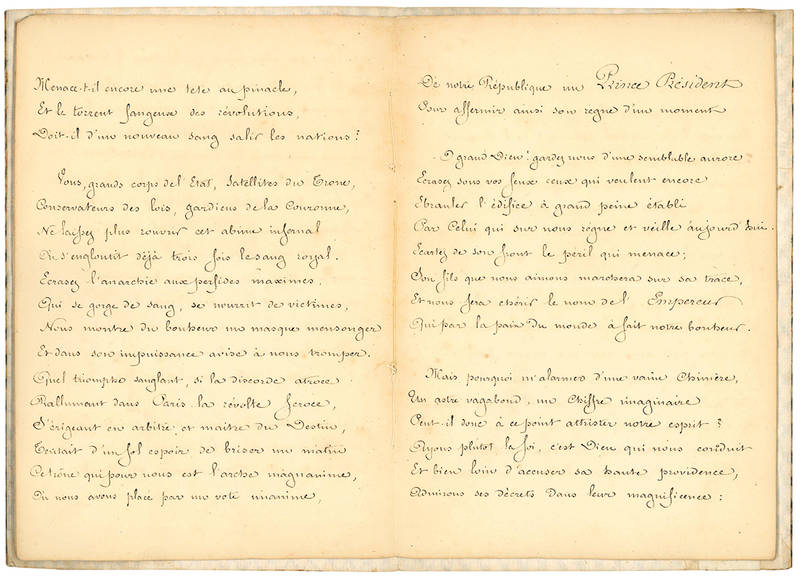 Menace-t-il encore une tete au pinacle,
Et le torrent fangeux des révolutions,
Doit-il d'un nouveau sang salir les nations?
Vous, grands corps de l'Etat, Satellites du Trone,
Conservateurs des lois, gardiens de la Couronne,
Ne laissez plus rouvrir cet abime infernal
Où s'engloutit déjà trois fois le sang royal.
Ecrasez l'anarchie aux perfides maximes.
Qui se gorge de sang, se nourrit de victimes,
Nous montre du bonheur un masque mensonger
Et dans son impuissance avise à nous tromper.
Quel triomphe sanglant, si la discorde atroce
Rallumant dans Paris la révolte féroce,
S'érigeant en arbitre et maitre du Destin,
Tentait d'un fol espoir de briser un matin
Ce trône qui pour nous est l'arche magnanime,
Où nous avons placé par un vote unanime,
De notre République un Prince Président
Pour affermir ainsi son règne d'un moment
O grand Dieu! gardez nous d'une semblable aurore
Ecrasez sous vos feux ceux qui veulent encore
Ebranler l'édifice à grand peine établi
Par Celui qui sur nous règne et veille aujourd'hui.
Ecartez de son front le péril qui menace;
Son fils que nous aimons marchera sur sa trace,
Et nous fera chérir le nom de l'Empereur
Qui par la paix du monde à fait notre bonheur.
Mais pourquoi m'alarmer d'une vaine Chimère,
Un astre vagabond, un Chiffre imaginaire
Peut-il donc à ce point attrister notre esprit?
Ayons plutot la foi, c'est Dieu qui nous conduit
Et bien loin d'accuser sa haute providence,
Admirons ses décrets dans leur magnificence: